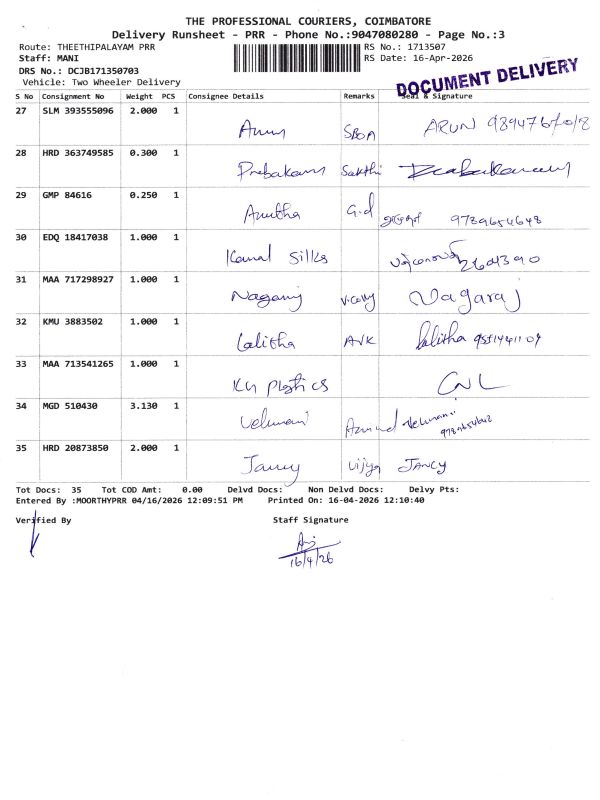 THE PROFESSIONAL COURIERS, COIMBATORE
Delivery Runsheet - PRR - Phone No.:9047080280 - Page No.:3
Route: THEETHIPALAYAM PRR RS No.: 1713507
Staff: MANI RS Date: 16-Apr-2026
DRS No.: DCJB171350703
DOCUMENT DELIVERY
Vehicle: Two Wheeler Delivery
S No Consignment No Weight PCS Consignee Details Remarks Seal & Signature
27 SLM 393555096 2.000 1 Arun SBOA ARUN
28 HRD 363749585 0.300 1 Prabakaran Sakthi
29 GMP 84616 0.250 1 Anutha G.d 9789654648
30 EDQ 18417038 1.000 1 Kamal Silks 2604390
31 MAA 717298927 1.000 1 Nagaraj Nagaraj
32 KMU 3883502 1.000 1 Lalitha AVK Lalitha
33 MAA 713541265 1.000 1 KG Plastics
34 MGD 510430 3.130 1 Velumani Velumani
35 HRD 20873850 2.000 1 Jancy Vijya JANCY
Tot Docs: 35 Tot COD Amt: 0.00 Delvd Docs: Non Delvd Docs: Delvy Pts:
Entered By :MOORTHYPRR 04/16/2026 12:09:51 PM Printed On: 16-04-2026 12:10:40
Verified By Staff Signature
16/4/26